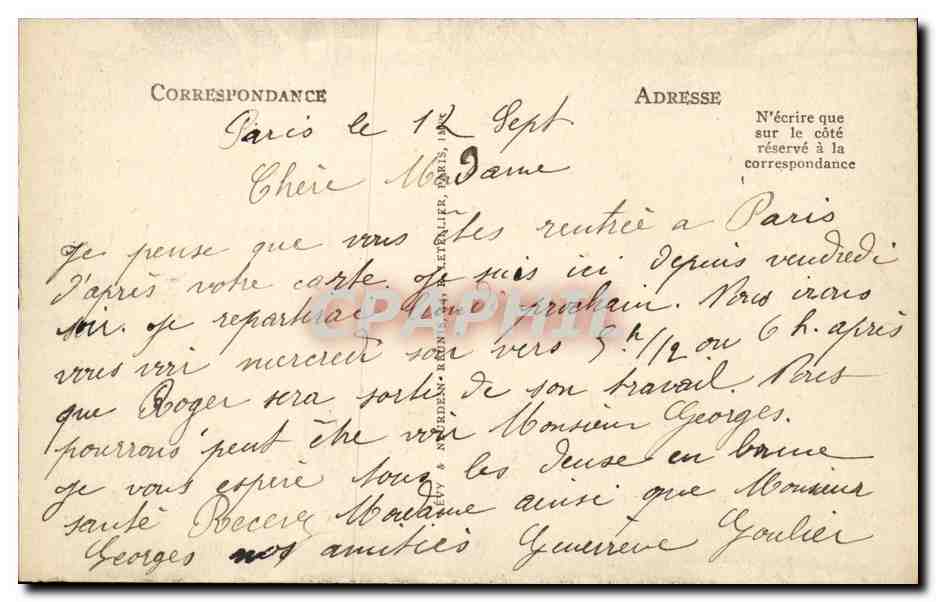 CORRESPONDANCE
ADRESSE
N'écrire que
sur le côté
réservé à la
correspondance
Paris le 12 Sept
Chère Madame
Je pense que vous êtes rentrée a Paris
d'après votre carte. Je suis ici depuis vendredi
soir. Je repartirai lundi prochain. Nous irons
vous voir mercredi soir vers 5h 1/2 ou 6 h. après
que Roger sera sorti de son travail. Nous
pourrons peut être voir Monsieur Georges.
Je vous espère tous les deuse en bonne
santé Recevez Madame ainsi que Monsieur
Georges nos amitiés Genevieve Goulier
LÉVY & NEURDEIN RÉUNIS, 44, R. LETELLIER, PARIS, IMP.
CPAPHIL